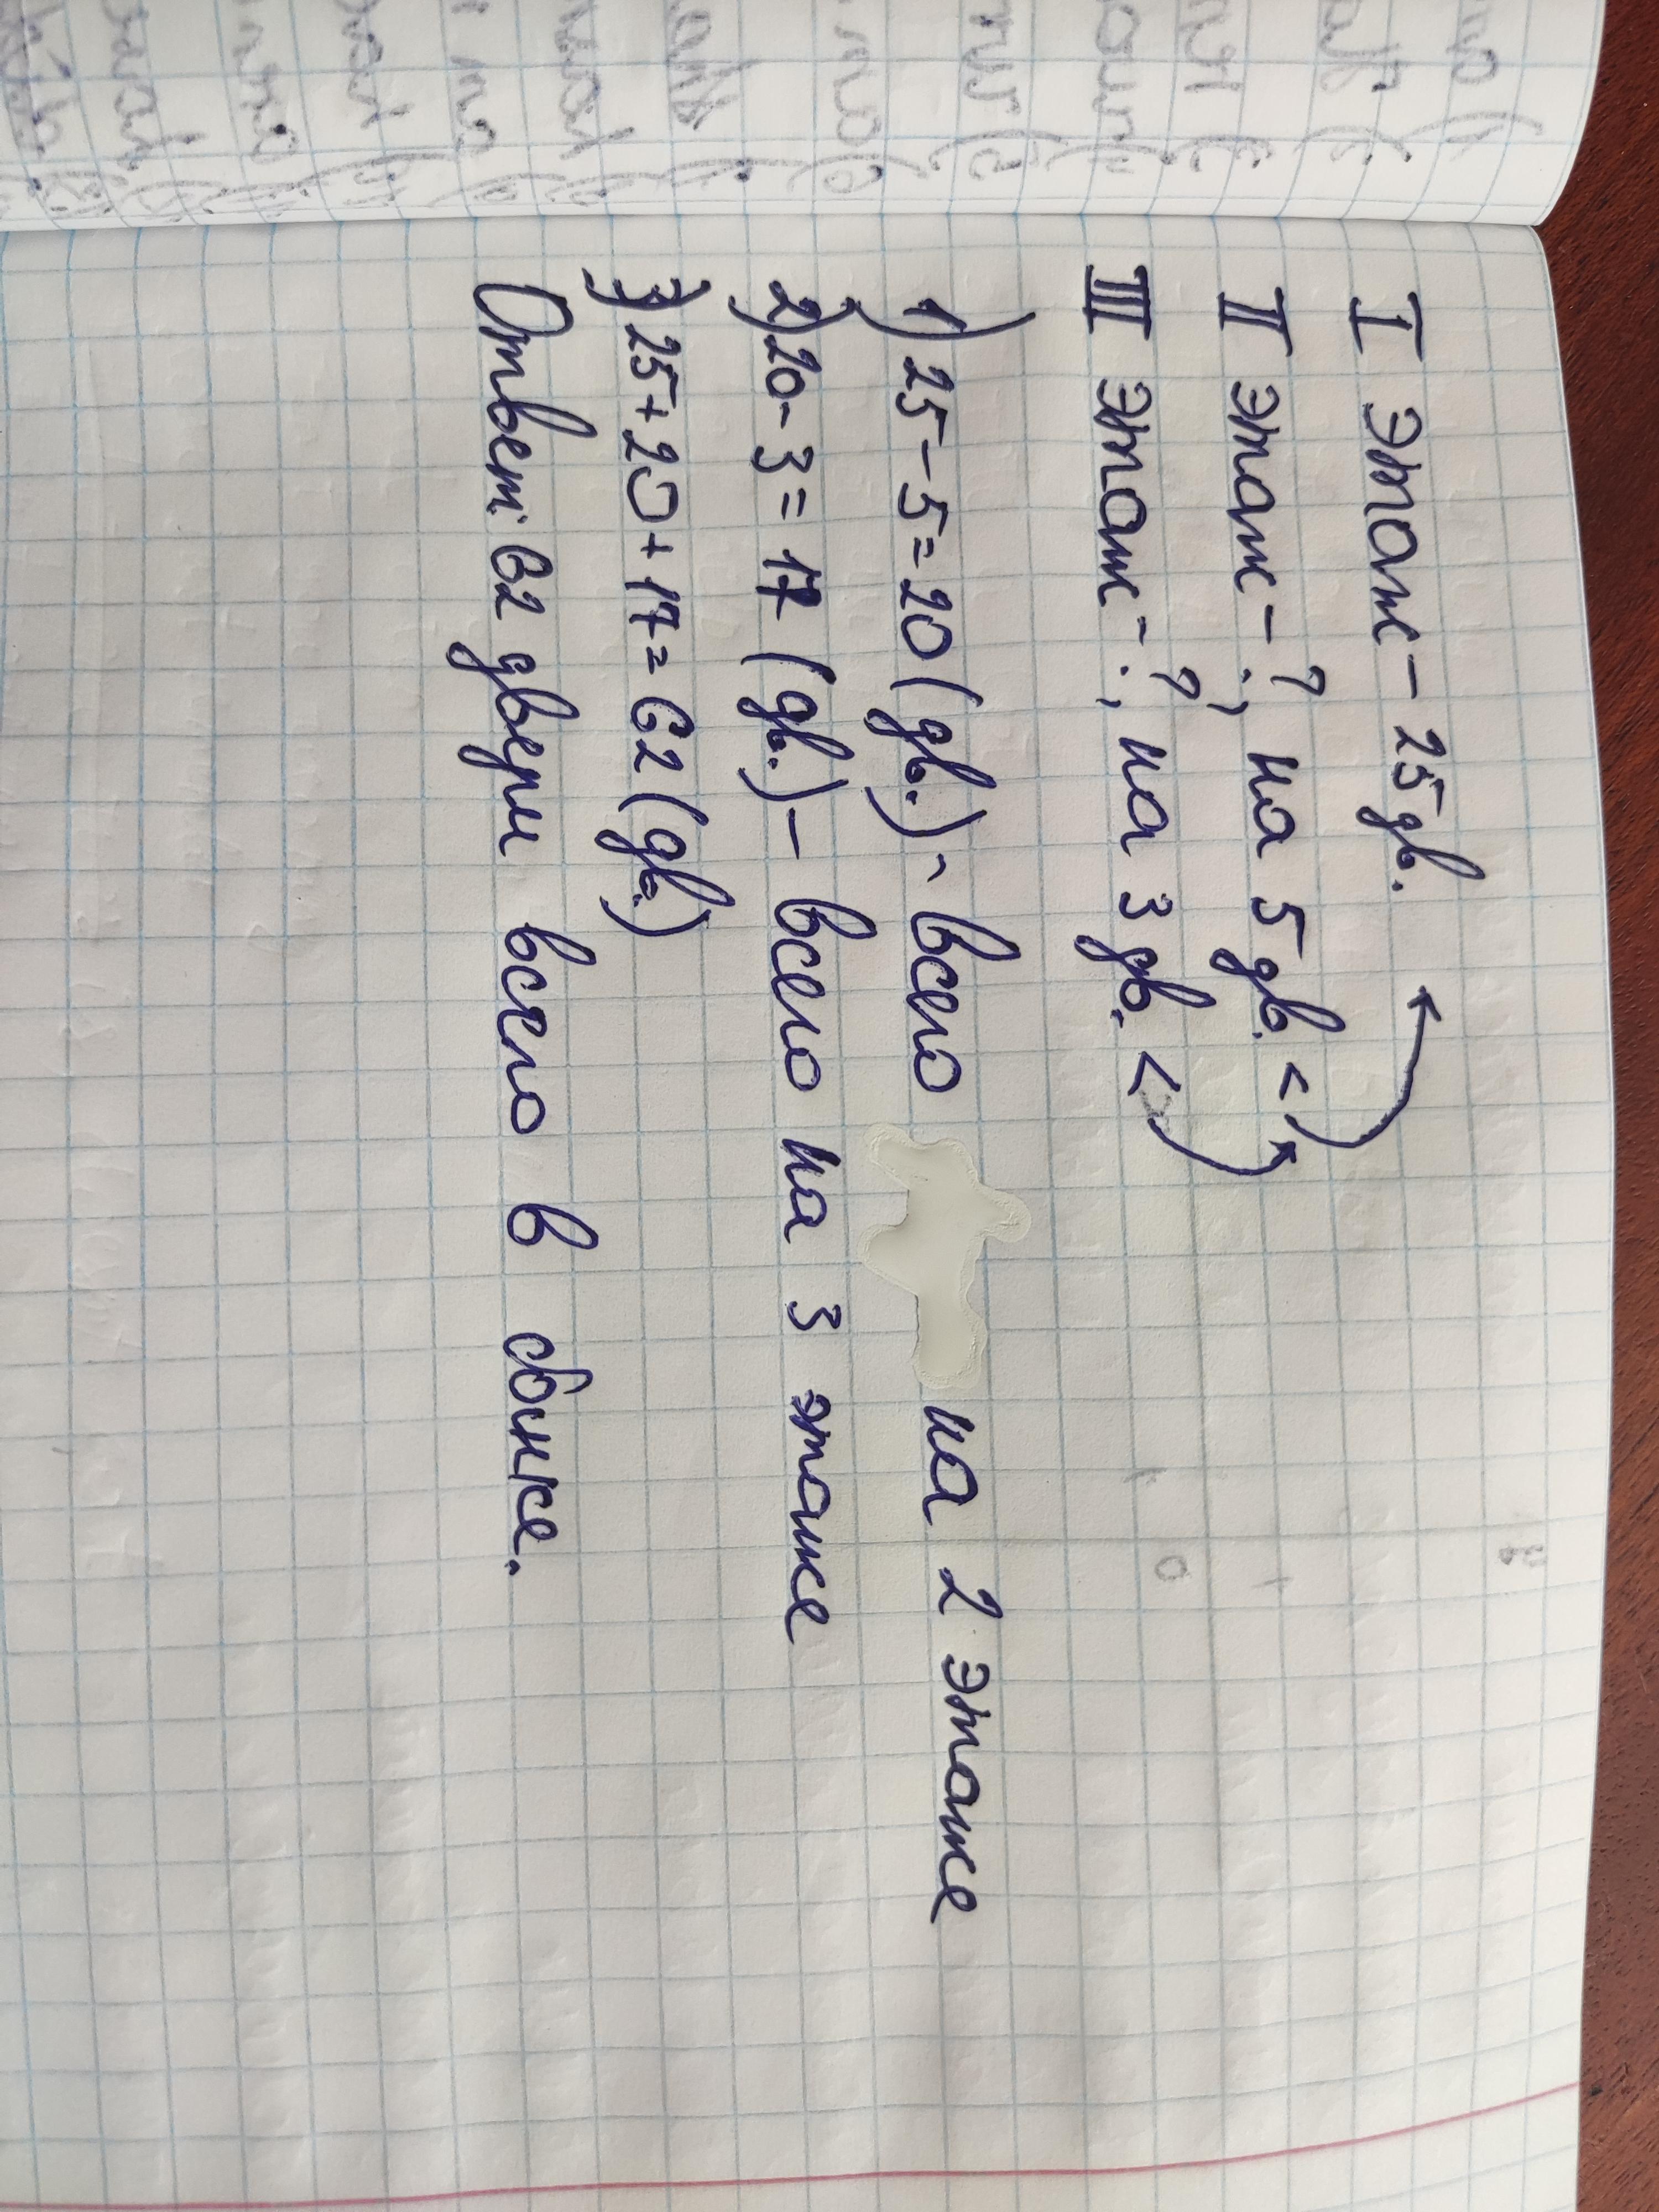 I этаж - 25 дв.
II этаж - ?, на 5 дв. <
III этаж - ?, на 3 дв. <
1) 25 - 5 = 20 (дв.) - всего на 2 этаже
2) 20 - 3 = 17 (дв.) - всего на 3 этаже
3) 25 + 20 + 17 = 62 (дв.)
Ответ: 62 двери всего в